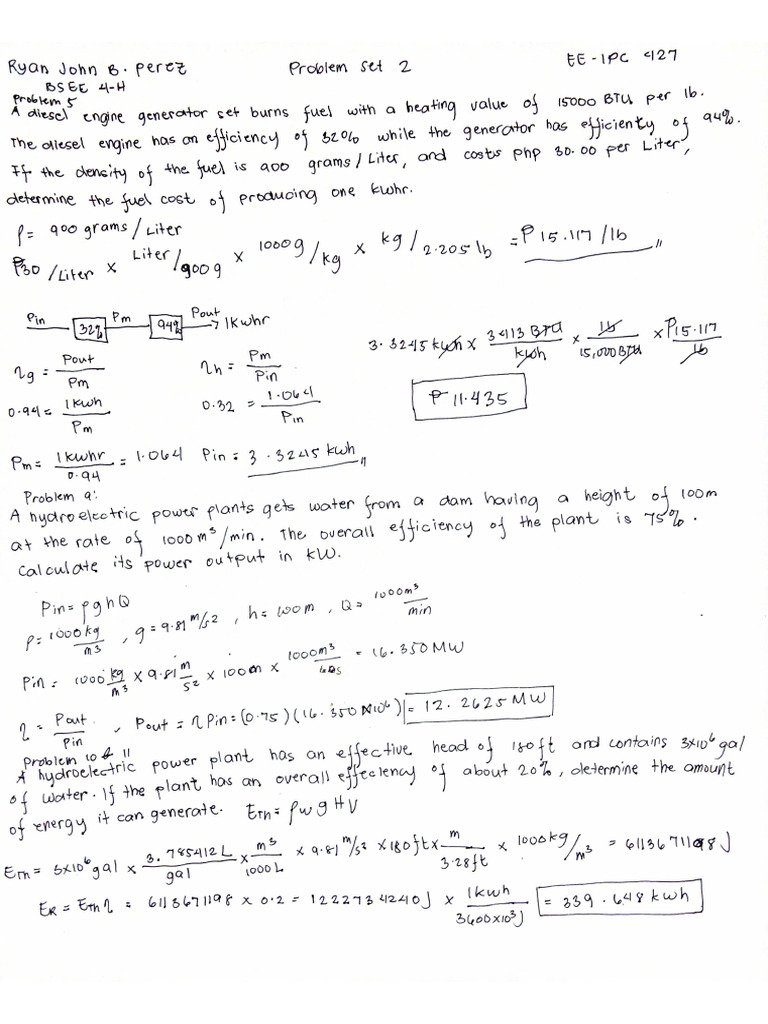 Ryan John B. Perez Problem Set 2 EE-IPC 427
BSEE 4-H
Problem 5
A diesel engine generator set burns fuel with a heating value of 15000 BTU per lb.
The diesel engine has an efficiency of 32% while the generator has efficienty of 94%.
If the density of the fuel is 900 grams/Liter, and costs php 30.00 per Liter,
determine the fuel cost of producing one kwhr.
ρ = 900 grams/Liter
₱30/Liter × Liter/900g × 1000g/kg × kg/2.205 lb = ₱15.117/lb
Pin 32% Pm 94% Pout 1kwhr
ηg = Pout/Pm ηh = Pm/Pin 3.3245 kwh × 3413 BTU/kwh × lb/15,000BTU × ₱15.117/lb
0.94 = 1kwh/Pm 0.32 = 1.064/Pin ₱11.435
Pm = 1kwhr/0.94 = 1.064 Pin = 3.3245 kwh
Problem 9:
A hydroelectric power plants gets water from a dam having a height of 100m
at the rate of 1000m³/min. The overall efficiency of the plant is 75%.
Calculate its power output in kW.
Pin = ρghQ
ρ = 1000kg/m³, g = 9.81 m/s², h = 100m, Q = 1000m³/min
Pin = 1000 kg/m³ × 9.81 m/s² × 100m × 1000m³/60s = 16.350 MW
η = Pout/Pin, Pout = ηPin = (0.75)(16.350×10⁶) = 12.2625 MW
Problem 10 & 11
A hydroelectric power plant has an effective head of 180ft and contains 3×10⁶ gal
of water. If the plant has an overall effeciency of about 20%, determine the amount
of energy it can generate. ETh = ρw g H V
ETh = 3×10⁶gal × 3.785412L/gal × m³/1000L × 9.81 m/s² × 180ft × m/3.28ft × 1000kg/m³ = 6113671198 J
ER = ETh η = 6113671198 × 0.2 = 1222734240J × 1kwh/3600×10³J = 339.648 kwh